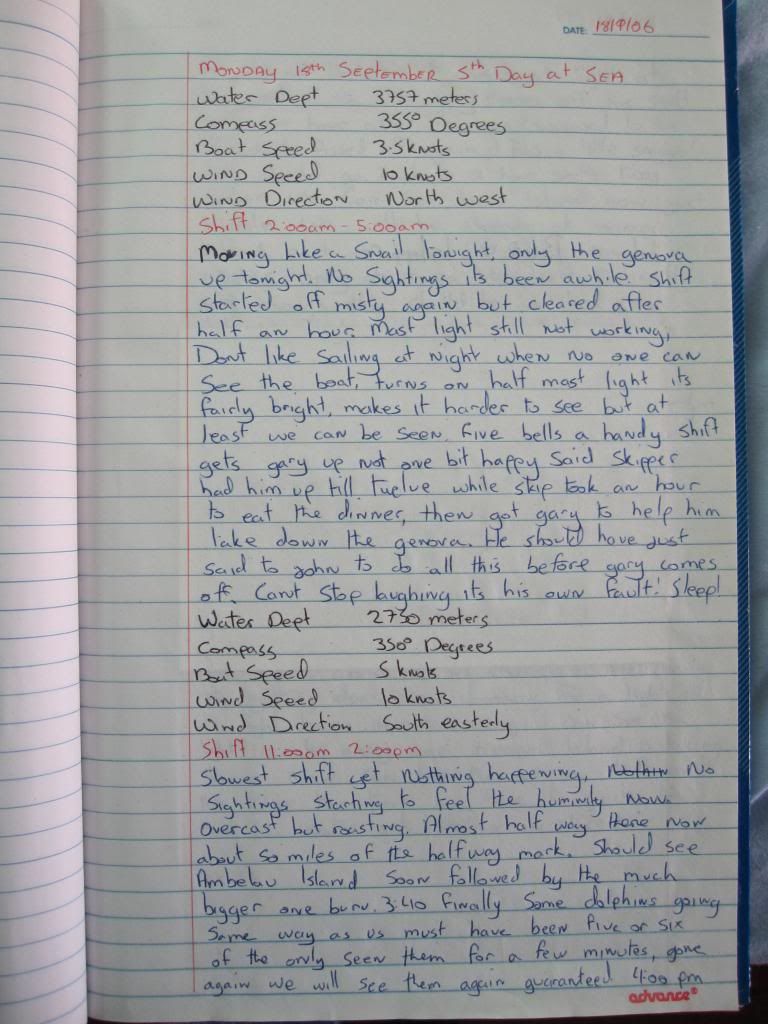 DATE: 18/9/06
MONDAY 18th September 5th Day at SEA
Water Dept 3757 meters
Compass 355° Degrees
Boat Speed 3.5 knots
WIND Speed 10 knots
WIND Direction North west
Shift 2:00am - 5:00am
Moving Like a Snail tonight, only the genova
up tonight. No Sightings its been awhile. Shift
started off misty again but cleared after
half an hour. Mast light still not working,
Dont like sailing at night when no one can
See the boat, turns on half mast light its
fairly bright, makes it harder to see but at
least we can be seen. Five bells a handy shift
gets gary up not one bit happy Said Skipper
had him up till twelve while skip took an hour
to eat the dinner, then got gary to help him
take down the genova. He should have just
said to john to do all this before gary comes
off. Cant stop laughing its his own fault! Sleep!
Water Dept 2750 meters
Compass 350° Degrees
Boat Speed 5 knots
Wind Speed 10 knots
Wind Direction South easterly
Shift 11:00am 2:00pm
Slowest shift yet Nothing happening, Nothin No
Sightings starting to feel the huminity now.
Overcast but roasting. Almost half way there now
about 50 miles of the halfway mark. Should see
Ambelau Island Soon followed by the much
bigger one buru. 3:40 finally Some dolphins going
Same way as us must have been five or six
of the only seen them for a few minutes, gone
again we will see them again guaranteed 4:00 pm
advance®